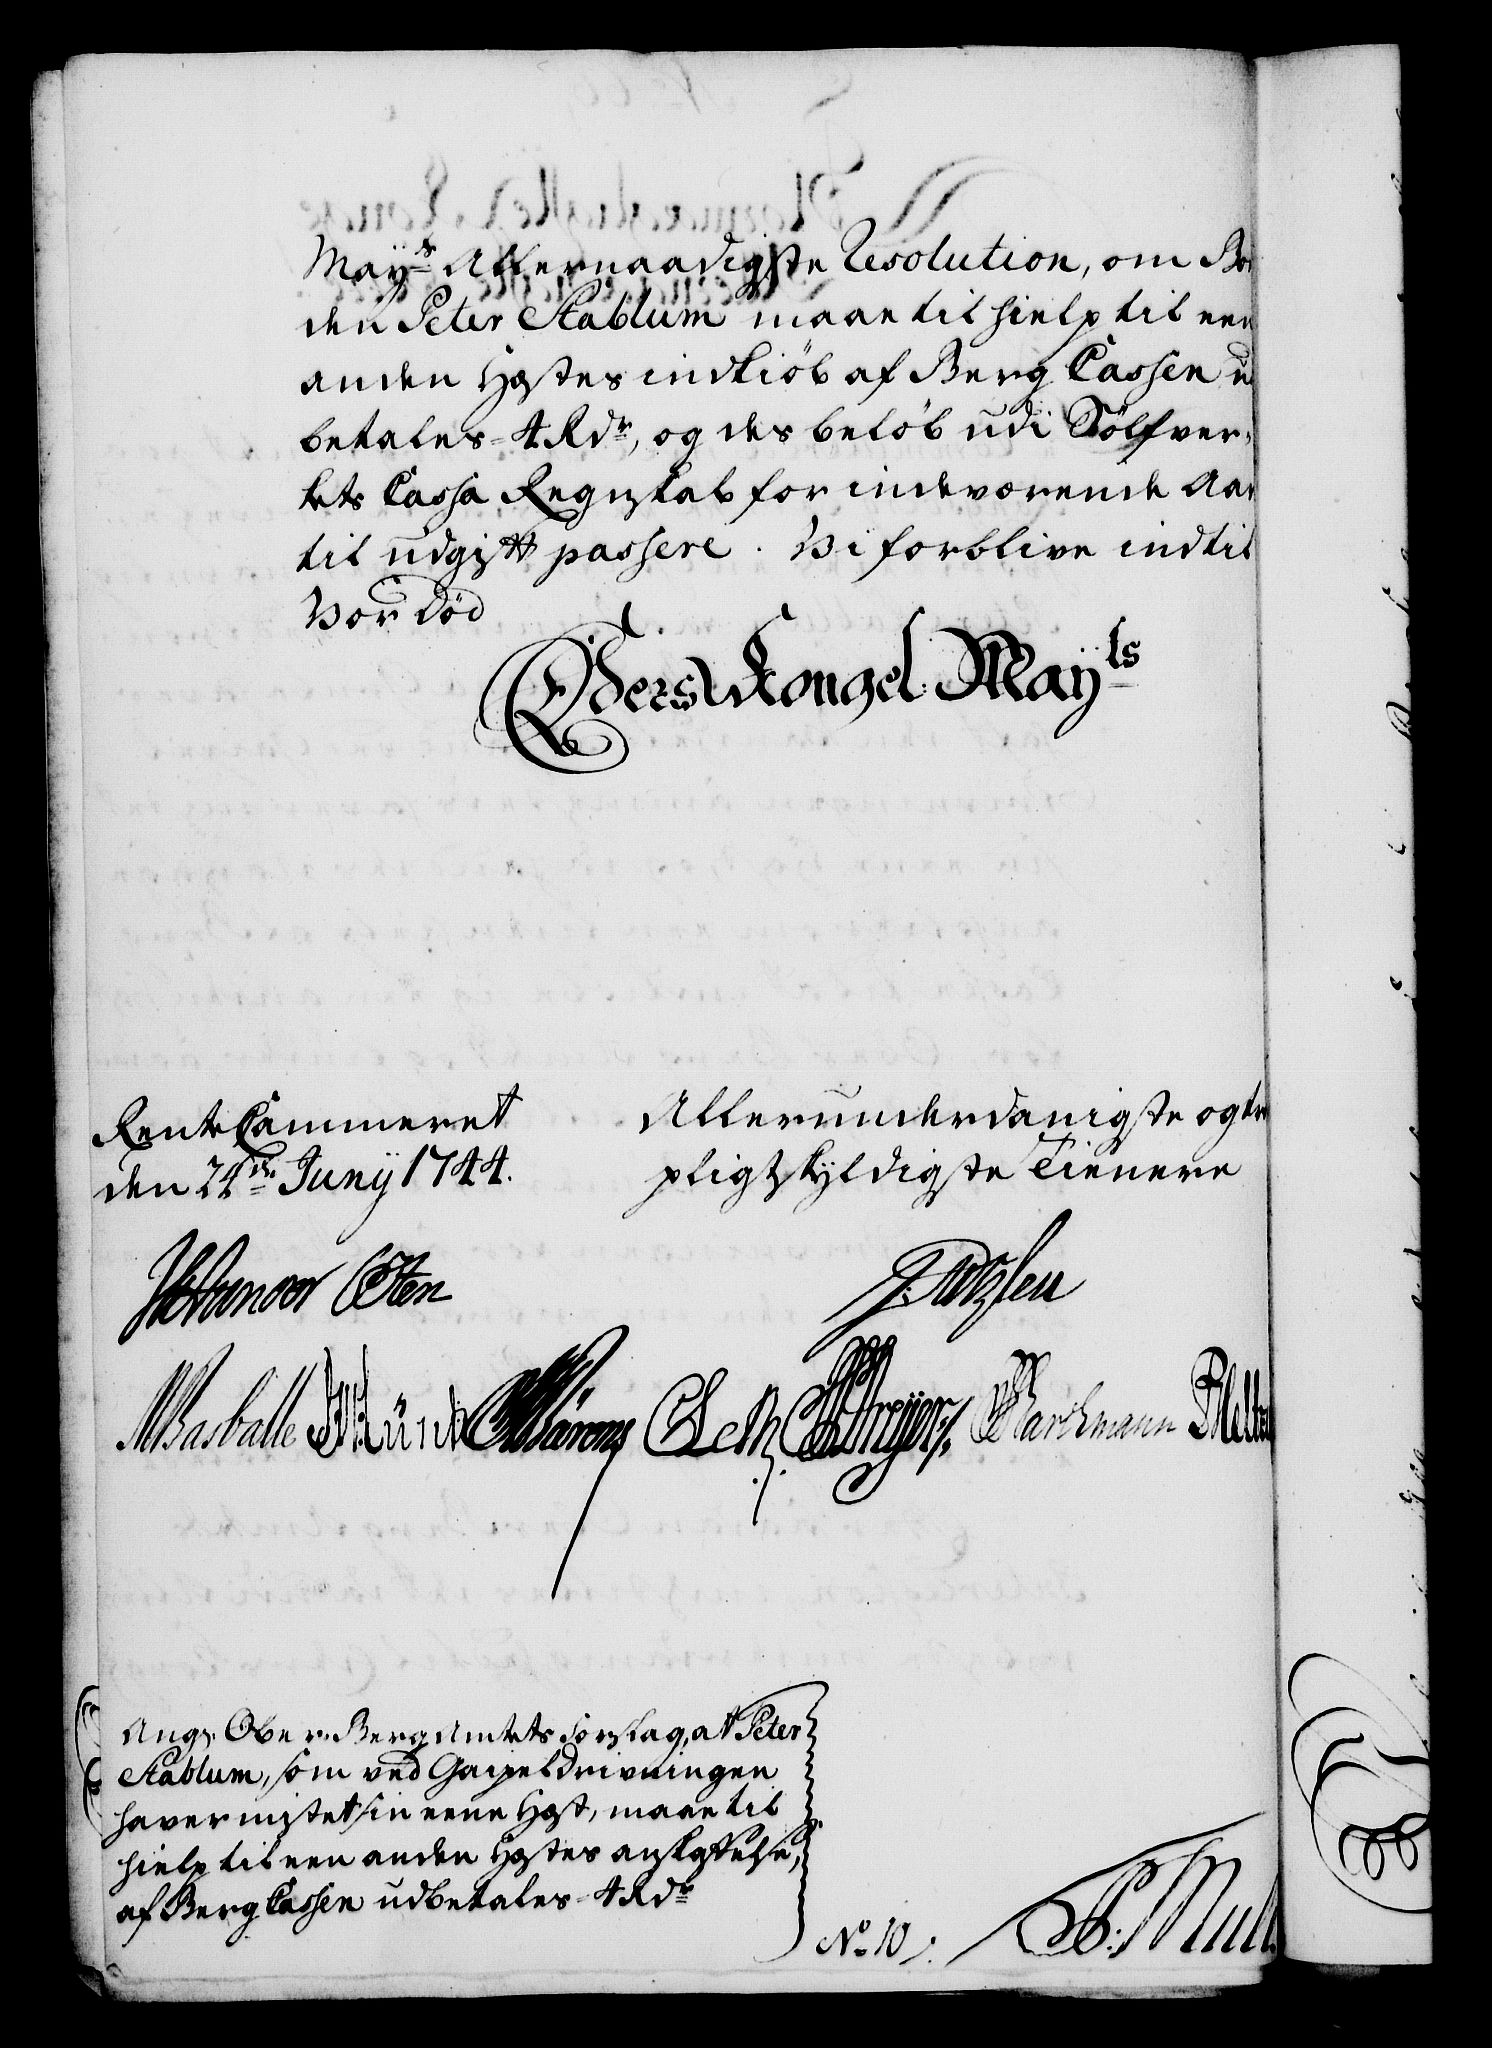 May^ts Allernaadigste Resolution, om Bon
den Peter Stablum maae til hielp til een
anden Hestes indkiöb af Berg Cassen u
betales 4 Rd^r, og des belöb udi Sölfver-
kets Cassa Regnskab for indeværende Aar
til udgift passere. Vi forblive indtil
Vor död
Eders Kongel: May^ts
Rente Cammeret
den 24^de Junij 1744.
Allerunderdanigste og tro
pligtskyldigste Tienere
Basballe Münch Bärens Leth Dreyer Marckmann
Ang: Ober-Berg Amtets Forslag, at Peter
Stablum, som ved Gaipeldrivningen
haver mistet sin eene Hest, maae til
hielp til een anden Hestes anskaffelse,
af Berg Cassen udbetales 4 Rd^r
No 10